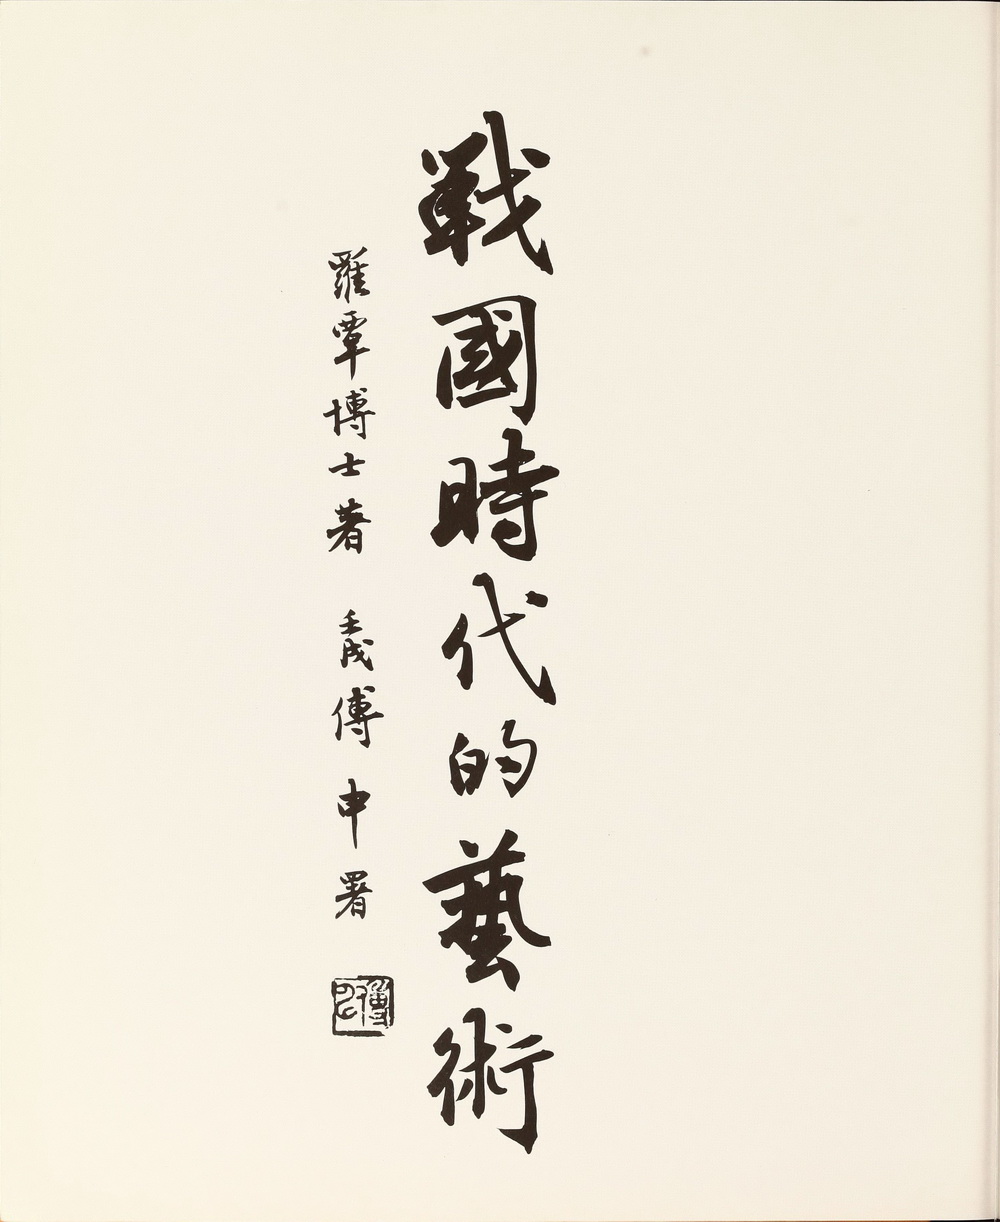 戰國時代的藝術
羅覃博士著 壬戌傅申署